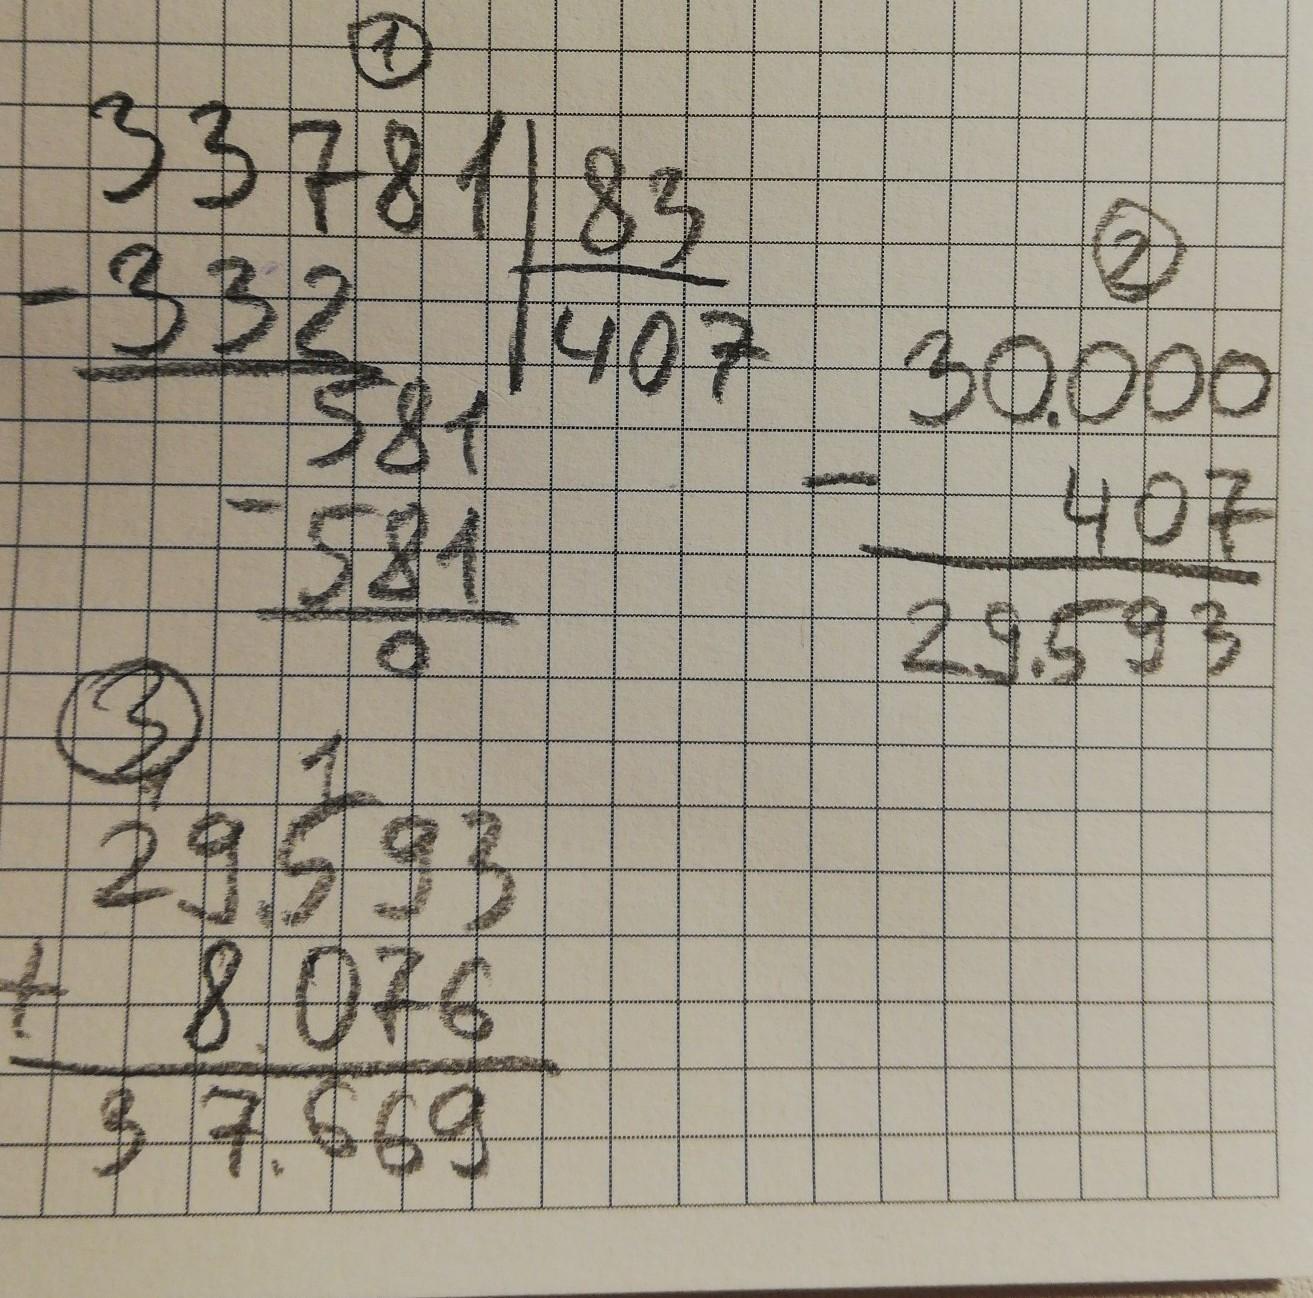 ①
33781 | 83
- 332
407
581
- 581
0
②
30.000
- 407
29.593
③
1 1
29.593
+ 8.076
37.669